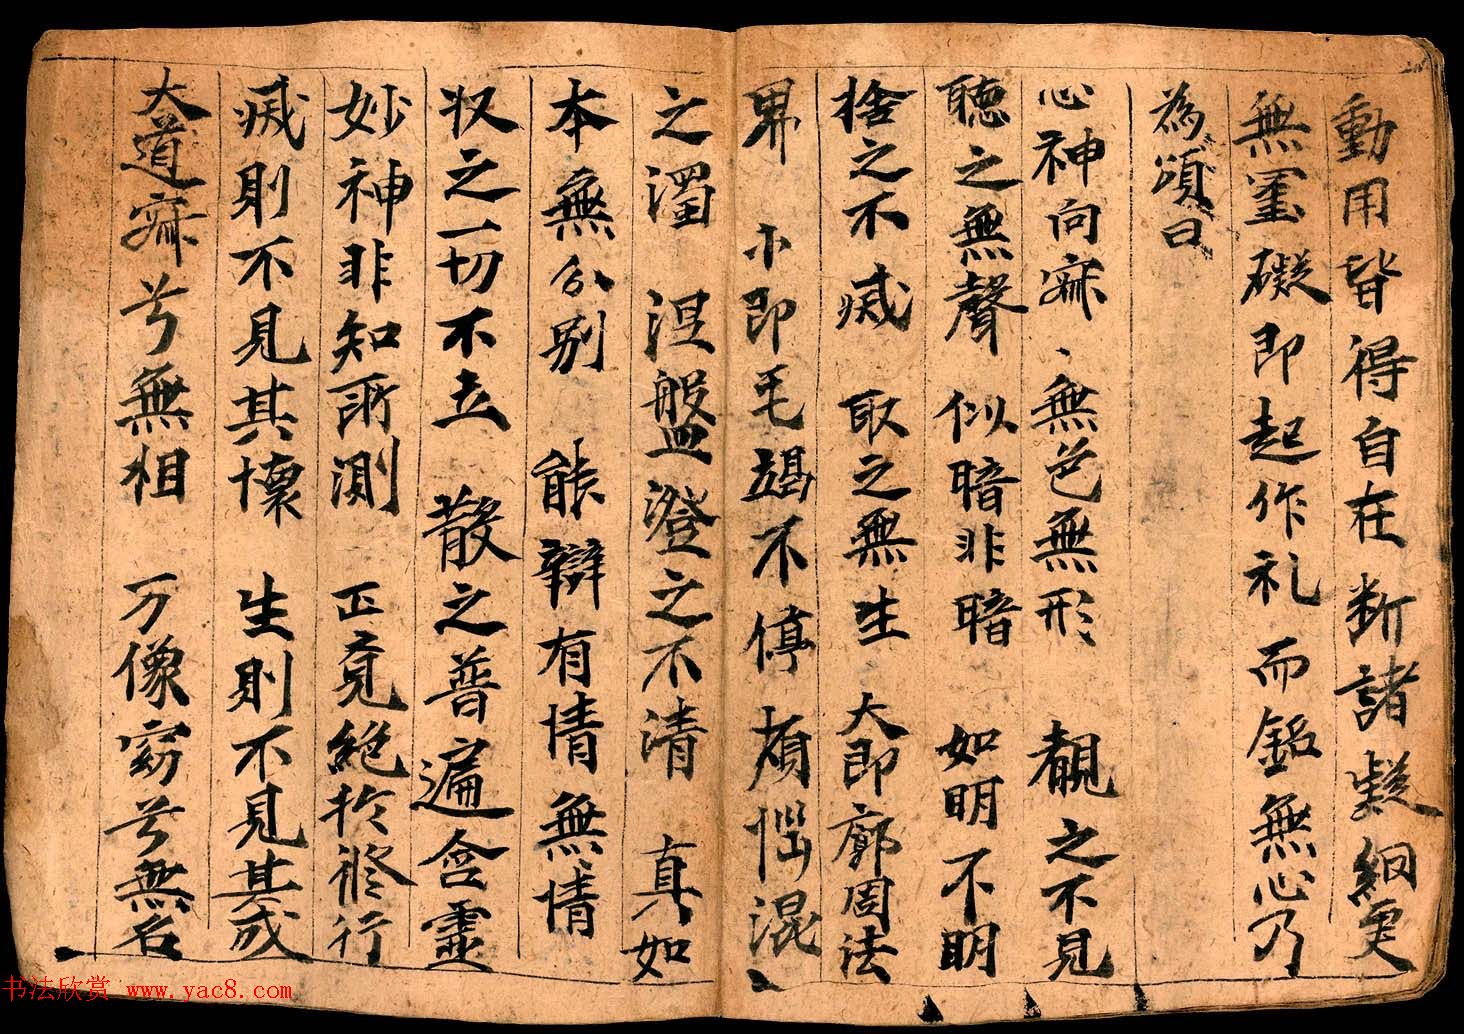 動用皆得自在断諸疑網更
無罣礙即起作礼而銘無心乃
為頌曰
心神向寐、無色無形 覩之不見
聽之無聲 似暗非暗 如明不明
捨之不滅 取之無生 大即廓周法
界 小即毛竭不停 煩惱混
之濁 涅盤澄之不清 真如
本無分別 能辯有情無情
收之一切不立 散之普遍含靈
妙神非知所測 正覓絕扵修行
滅則不見其懷 生則不見其成
大道寐兮無相 万像窈兮無名
书法欣赏 www.yac8.com